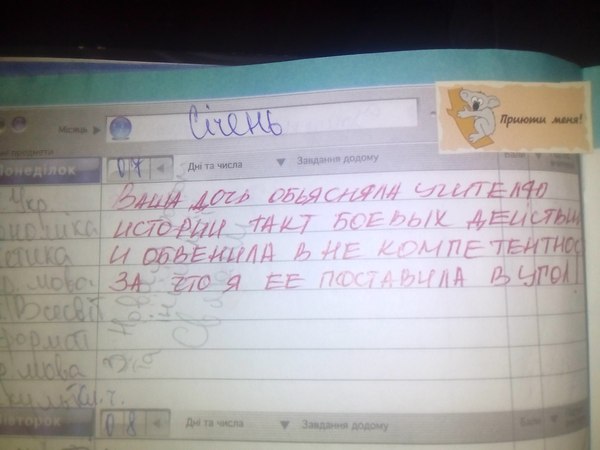 Місяць
Січень
Приюти меня!
понеділок
07
Дні та числа
Завдання додому
ВАША ДОЧЬ ОБЬЯСНЯЛА УЧИТЕЛЮ
ИСТОРИИ ТАКТ БОЕВЫХ ДЕЙСТВИ
И ОБВЕНИЛА В НЕ КОМПЕТЕНТНОС
ЗА ЧТО Я ЕЕ ПОСТАВИЛА В УГОЛ!
мова
Всесві
мова
вівторок
08
Дні та числа
Завдання додому
Бали